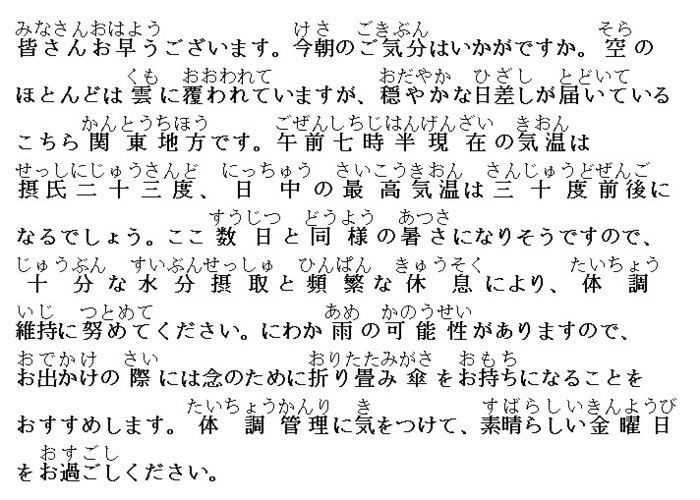 みなさんおはよう けさ ごきぶん そら
皆さんお早うございます。今朝のご気分はいかがですか。空の
くも おおわれて おだやか ひざし とどいて
ほとんどは雲に覆われていますが、穏やかな日差しが届いている
かんとうちほう ごぜんしちじはんげんざい きおん
こちら関東地方です。午前七時半現在の気温は
せっしにじゅうさんど にっちゅう さいこうきおん さんじゅうどぜんご
摂氏二十三度、日中の最高気温は三十度前後に
すうじつ どうよう あつさ
なるでしょう。ここ数日と同様の暑さになりそうですので、
じゅうぶん すいぶんせっしゅ ひんぱん きゅうそく たいちょう
十分な水分摂取と頻繁な休息により、体調
いじ つとめて あめ かのうせい
維持に努めてください。にわか雨の可能性がありますので、
おでかけ さい おりたたみがさ おもち
お出かけの際には念のために折り畳み傘をお持ちになることを
たいちょうかんり き すばらしいきんようび
おすすめします。体調管理に気をつけて、素晴らしい金曜日
おすごし
をお過ごしください。